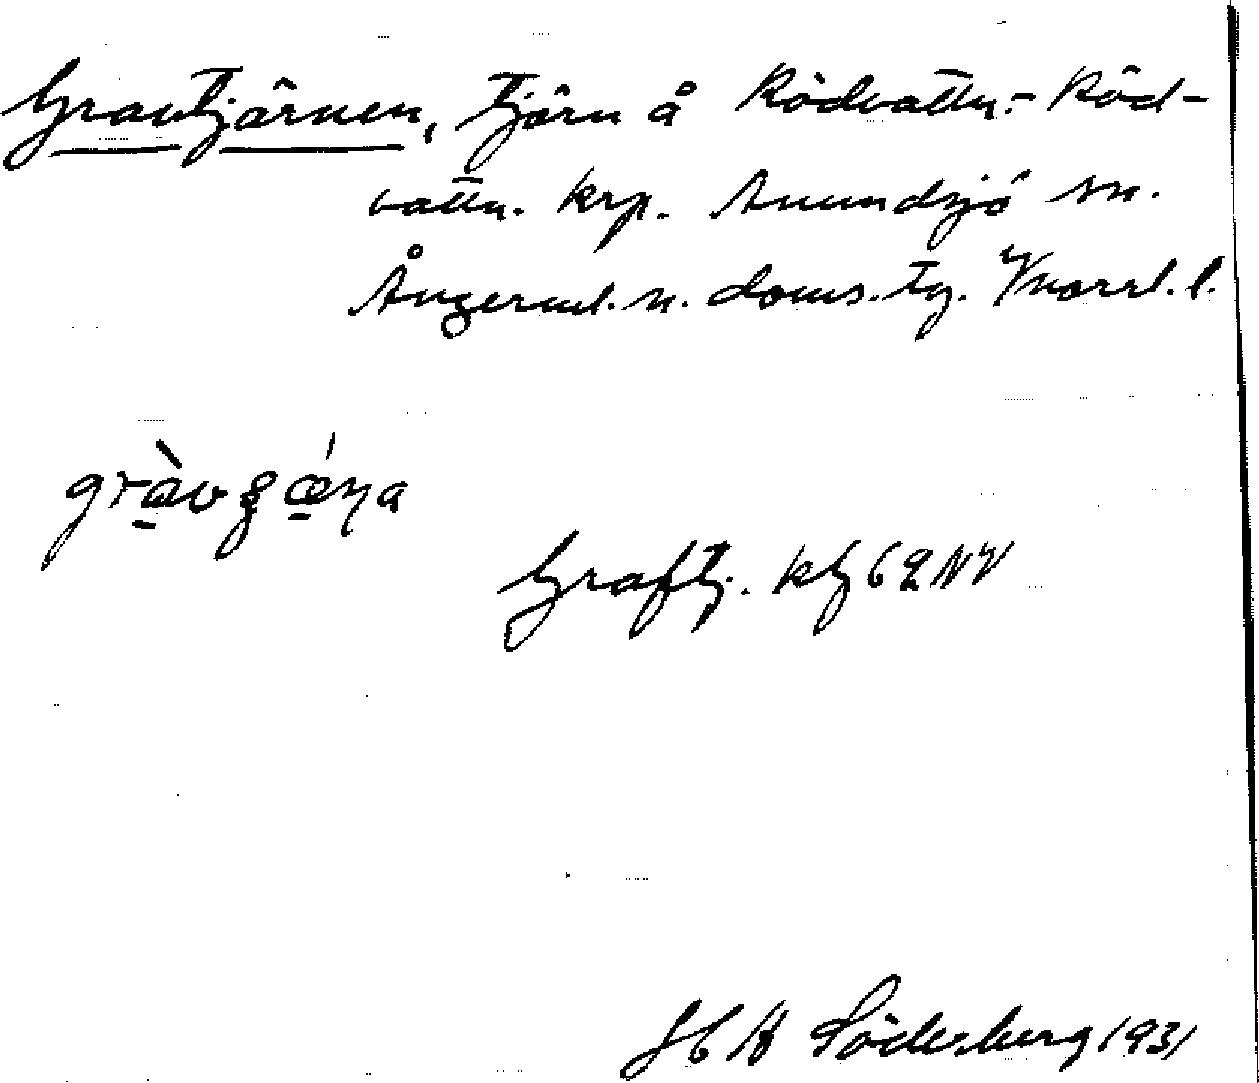 Gravtjärnen, tjärn å Rödvattn.- Röd-
vattn. krp. Anundsjö sn.
Ångerml. n. doms. tg. Vnorrl. l.
Graftj. kbl 62 NV
H A Söderberg 1931